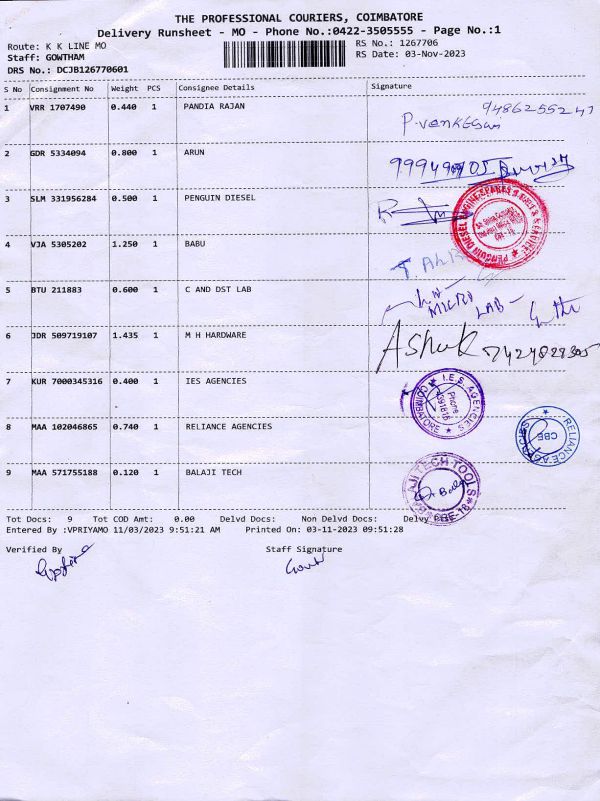 THE PROFESSIONAL COURIERS, COIMBATORE
Delivery Runsheet - MO - Phone No.:0422-3505555 - Page No.:1
Route: K K LINE MO RS No.: 1267706
Staff: GOWTHAM RS Date: 03-Nov-2023
DRS No.: DCJB126770601
S No Consignment No Weight PCS Consignee Details Signature
1 VRR 1707490 0.440 1 PANDIA RAJAN
P. venkesan
2 GDR 5334094 0.800 1 ARUN
3 SLM 331956284 0.500 1 PENGUIN DIESEL
PENGUIN DIESEL ENGINE SPARES
4 VJA 5305202 1.250 1 BABU
5 BTU 211883 0.600 1 C AND DST LAB
MICRO LAB
6 JDR 509719107 1.435 1 M H HARDWARE
Ashok
7 KUR 7000345316 0.400 1 IES AGENCIES
I.E.S. AGENCIES
COIMBATORE
Phone
8 MAA 102046865 0.740 1 RELIANCE AGENCIES
RELIANCE AGENCIES
CBE
9 MAA 571755188 0.120 1 BALAJI TECH
BALAJI TECH TOOLS
CBE-18
Tot Docs: 9 Tot COD Amt: 0.00 Delvd Docs: Non Delvd Docs: Delvy
Entered By :VPRIYAMO 11/03/2023 9:51:21 AM Printed On: 03-11-2023 09:51:28
Verified By Staff Signature